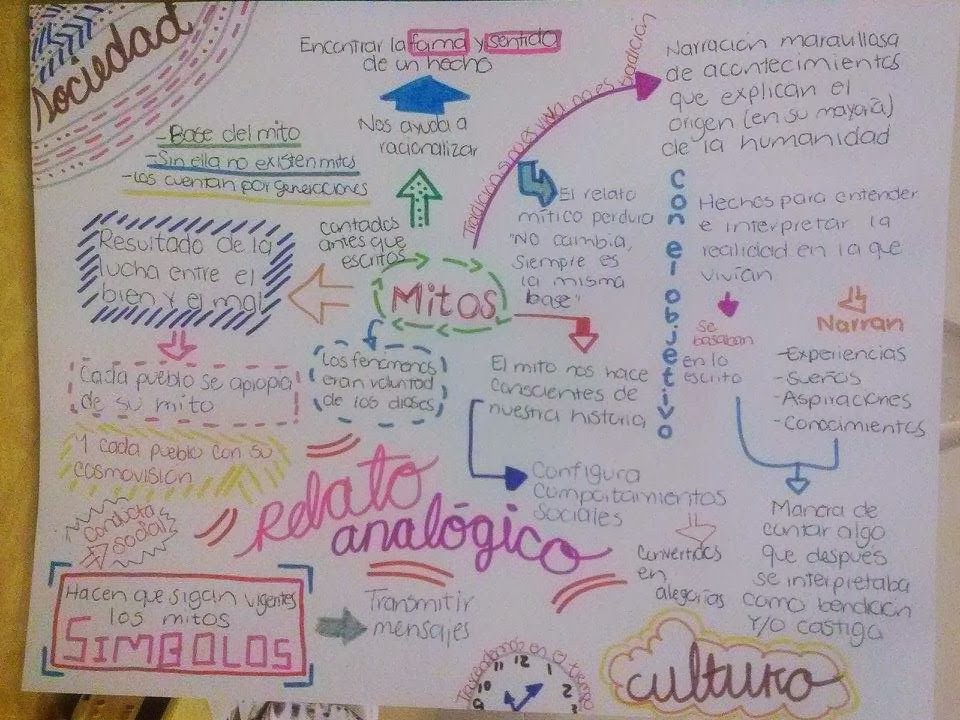 Sociedad
Encontrar la forma y sentido
de un hecho
Nos ayuda a
racionalizar
- Base del mito
- Sin ella no existen mitos
- Los cuentan por generaciones
contados
antes que
escritos
Mitos
Resultado de la
lucha entre el
bien y el mal
Cada pueblo se apropia
de su mito
1 cada pueblo con su
cosmovisión
Los fenómenos
eran voluntad
de los dioses
Tradición si no es vivida no es tradición
Narración maravillosa
de acontecimientos
que explican el
origen (en su mayoría)
de la humanidad
El relato
mítico perdura
"NO cambia,
siempre es
la misma
base"
Con el objetivo
Hechos para entender
e interpretar la
realidad en la que
vivían
se
basaban
en lo
escrito
Narran
- Experiencias
- Sueños
- Aspiraciones
- Conocimientos
El mito nos hace
conscientes de
nuestra historia
Configura
comportamientos
sociales
convertidos
en
alegorías
Manera de
contar algo
que después
se interpretaba
como bendición
y/o castigo
Relato
analógico
conducta
social
Hacen que sigan vigentes
los mitos
SIMBOLOS
Transmitir
mensajes
en el tiempo
11 12 1
10 2
9
cultura